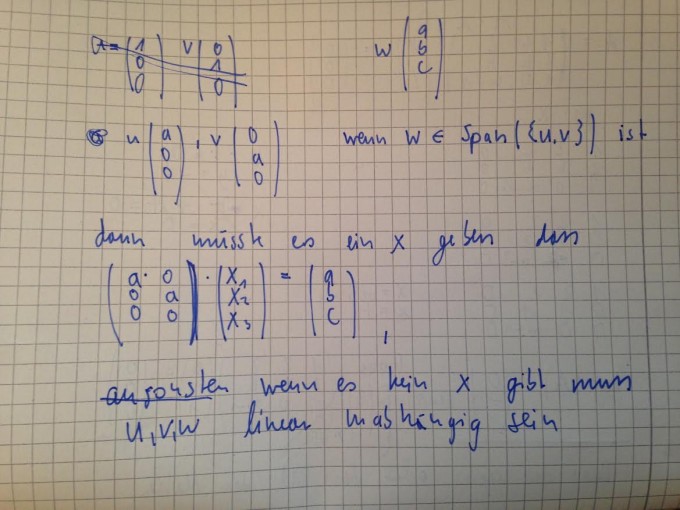 u = (1 0 0) v (0 1 0) w (a b c)
u (a 0 0), v (0 a 0) wenn w ∈ Span({u,v}) ist
dann müsste es ein x geben dass
(a 0 0 a 0 0) · (x₁ x₂ x₃) = (a b c),
ansonsten wenn es kein x gibt muss
u, v, w linear unabhängig sein